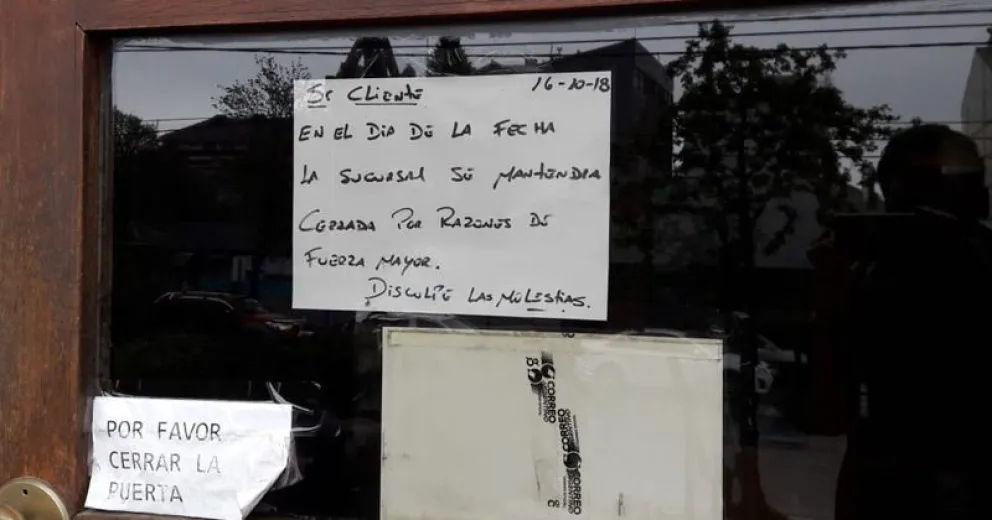 Sr CLIENTE 16-10-18
EN EL DIA DE LA FECHA
LA SUCURSAL SE MANTENDRA
CERRADA POR RAZONES DE
FUERZA MAYOR.
DISCULPE LAS MOLESTIAS.
POR FAVOR
CERRAR LA
PUERTA
CORREO
ARGENTINO
CORREO
CORREO
ARGENTINO